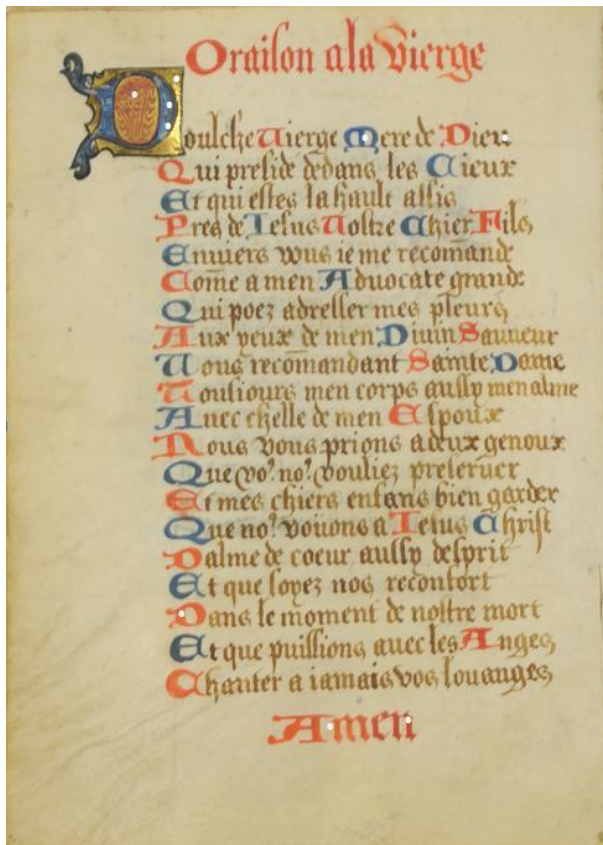 Oraison a la Vierge
Doulche Vierge Mere de Dieu
Qui preside dedans les Cieux
Et qui estes la hault assis
Pres de Iesus Vostre Chier Fils
Enuers vous ie me recomāde
Come a men Aduocate grande
Qui poez adresser mes pleurs
Aux yeux de men Diuin Sauueur
Vous recōmandant Sainte Dame
Tousiours men corps aussy men alme
Auec chelle de men Espoux
Nous vous prions a deux genoux
Que vo9 no9 vouliez preseruer
Et mes chiers enfans bien garder
Que no9 vouons a Iesus Christ
Dalme de coeur aussy desprit
Et que soyez nos reconfort
Dans le moment de nostre mort
Et que puissions auec les Anges
Chanter a iamais vos louanges
Amen